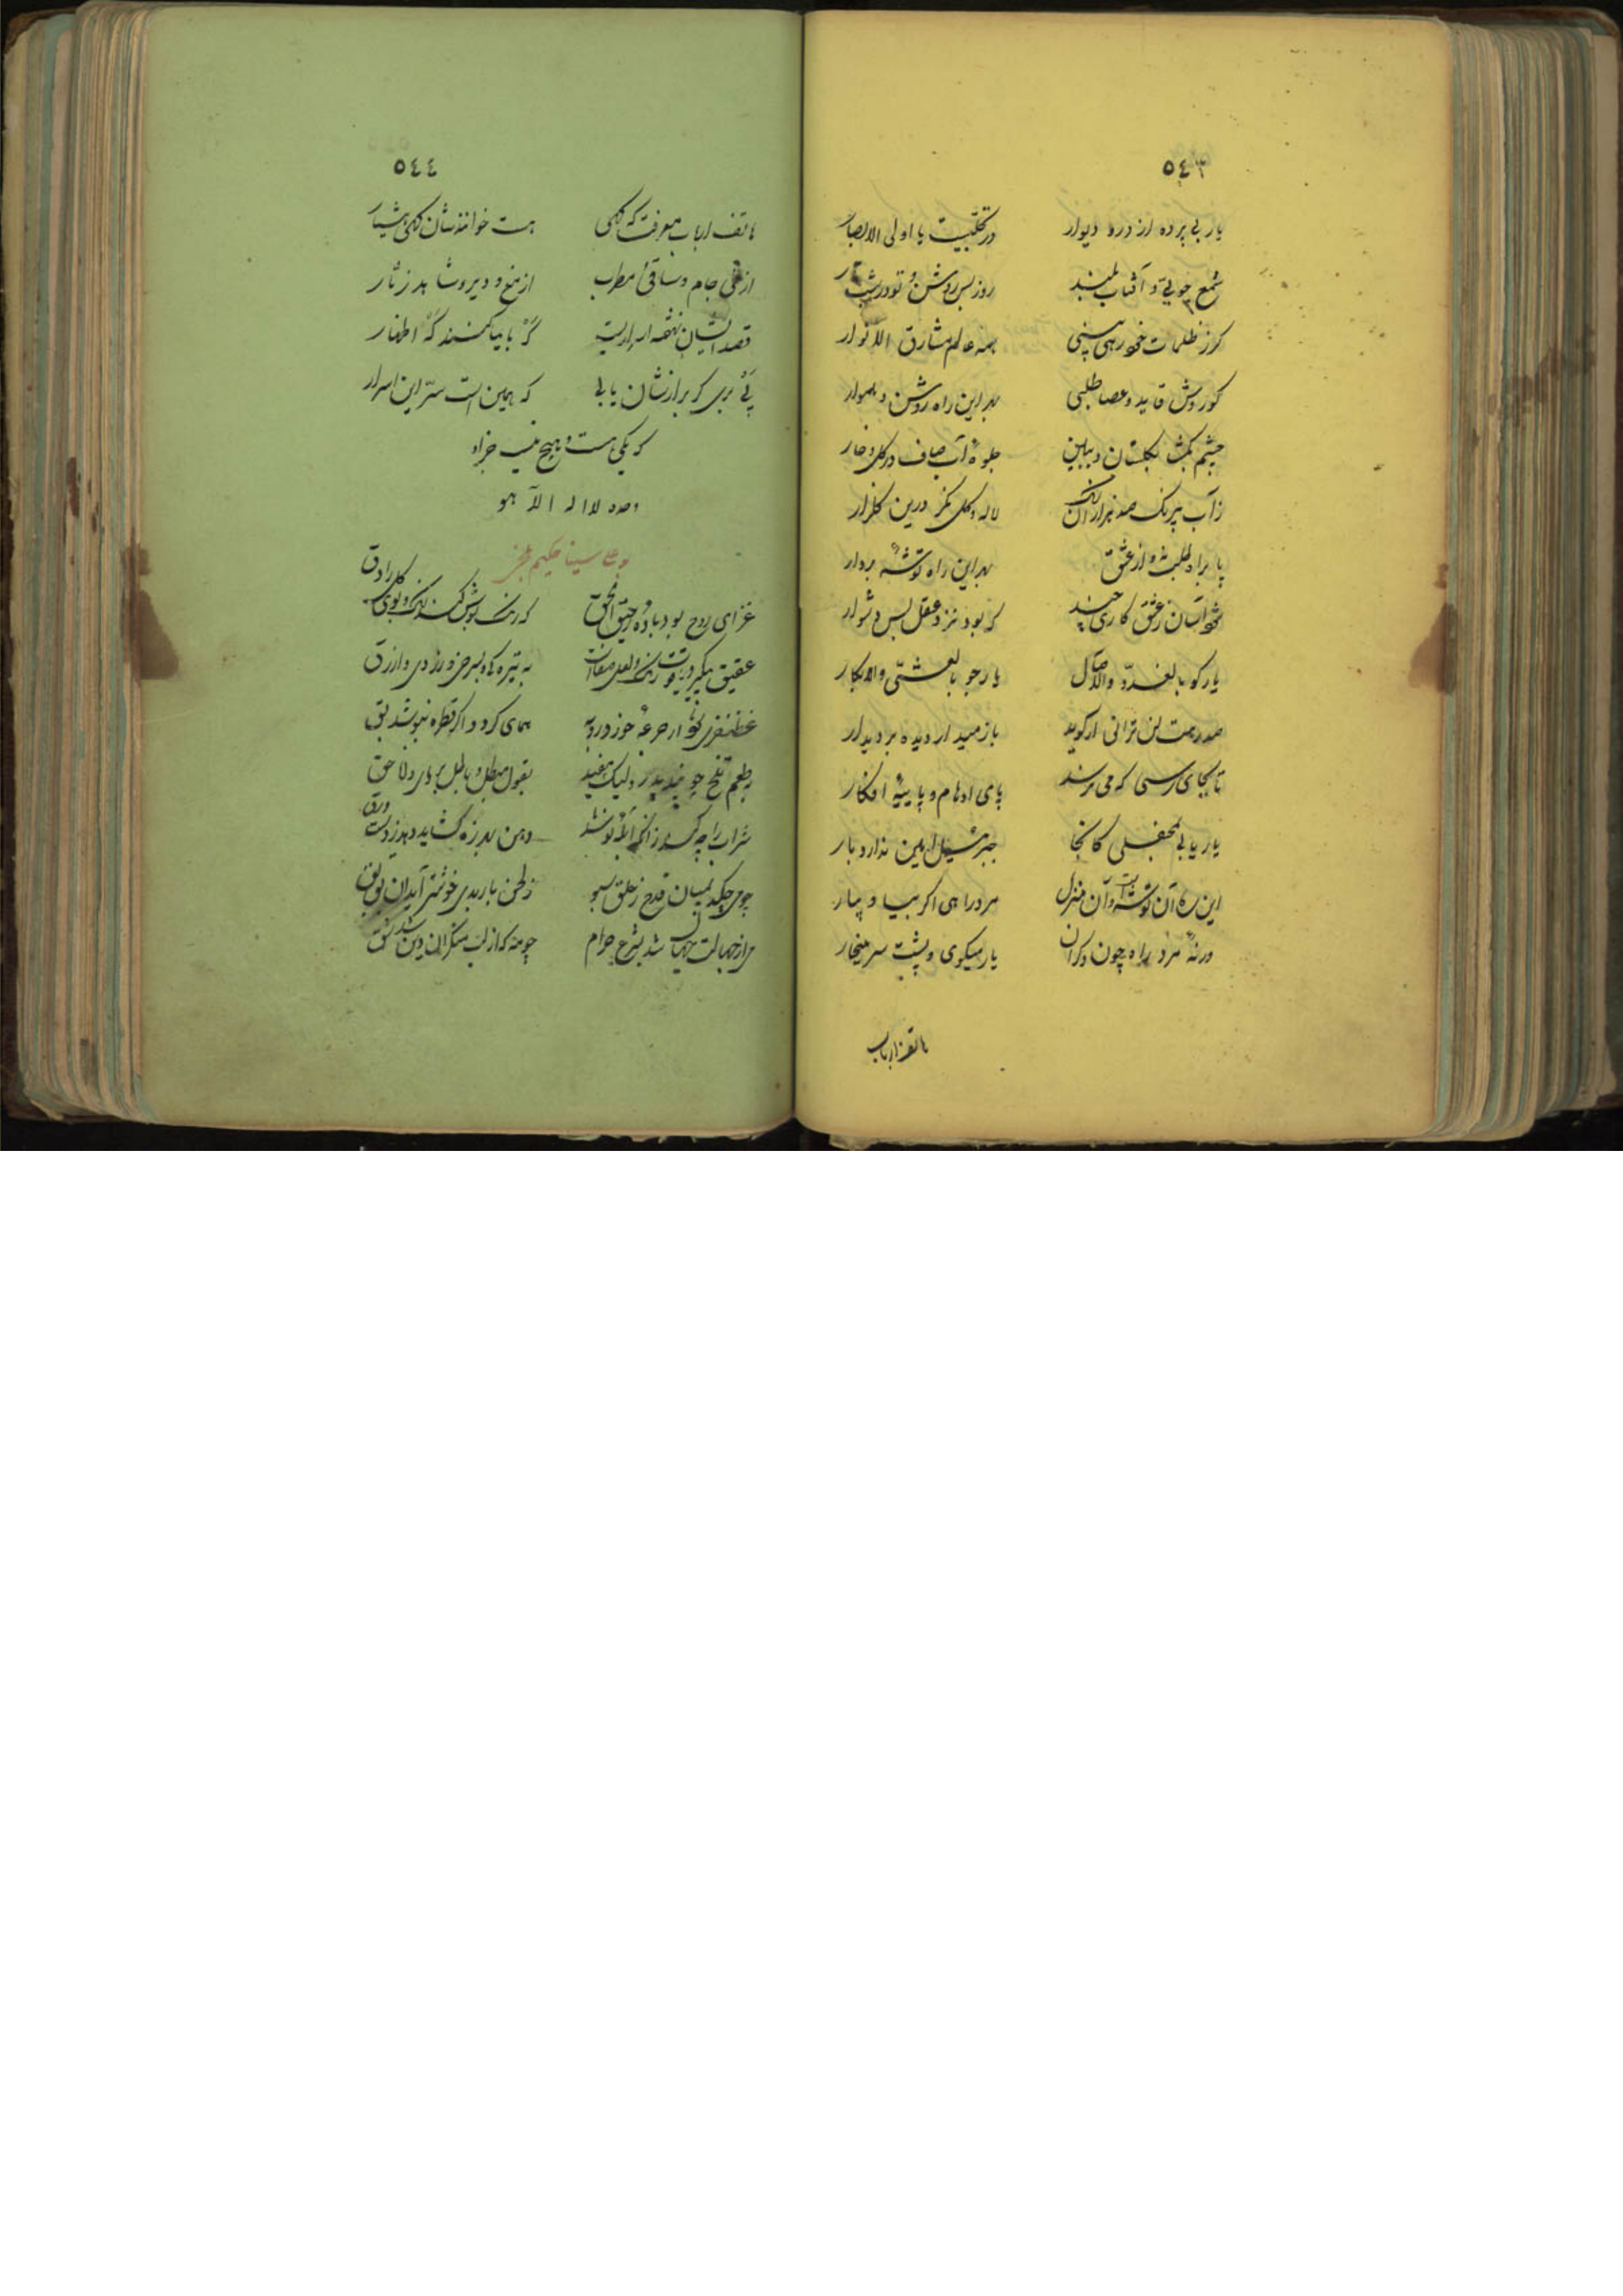 ٥٤٣
یار بی پرده از در و دیوار در تجلّیست یا اولی الابصار
شمع جویی و آفتاب بلند روز بس روشن و تو در شب تار
کر ز ظلمات خود رهی بینی همه عالم مشارق الانوار
کوروش قاید و عصا طلبی بهر این راه روشن و هموار
چشم بکشا بکلستان و ببین جلوهٔ آب صاف در کل و خار
ز آب بیرنک صد هزاران رنک لاله و کل نکر درین کلزار
پا براه طلب نه و از عشق بهر این راه توشهٔ بردار
شود آسان ز عشق کاری چند که بود نزد عقل بس دشوار
یار کو بالغدوّ و الآصال یار جو بالعشیّ و الابکار
صد رهت لن ترانی ار کوید باز میدار دیده بر دیدار
تا بجای رسی که می نرسد پای اوهام و پایهٔ افکار
یار یابی بمحفلی کانجا جبرئیل امین ندارد بار
این ره آن توشهٔ تو آن منزل مرد راهی اکر بیا و بیار
ورنهٔ مرد راه چون دکران یار میکوی و پشت سر میخار
هاتف ارباب
٥٤٤
هاتف ارباب معرفت که کهی مست خوانندشان کهی هشیار
از می و جام و ساقی و مطرب از مغ و دیر و شاهد و زنّار
قصد ایشان نهفته اسراریست که بایما کنند که اظهار
پی بری کر برازشان یابی که همین است سرّ این اسرار
که یکی هست و هیچ نیست جز او
وحده لا اله الّا هو
بوعلی سینا حکیم
غذای روح بود بادهٔ رحیق الحق که رنک بوش کند رنک و بوی کل را دق
عقیق پیکر و یاقوت رنک و لعل صفات
همای کردد اکر قطرهٔ بنوشد بق
بطعم تلخ چو پند پدر ولیک مفید بقول مبطل و باطل بر دانا حق
شراب را چه کنه زانکه ابلهی نوشد
می از جهالت جهال شد بشرع حرام چو مه که از سبب منکران دین شد شق